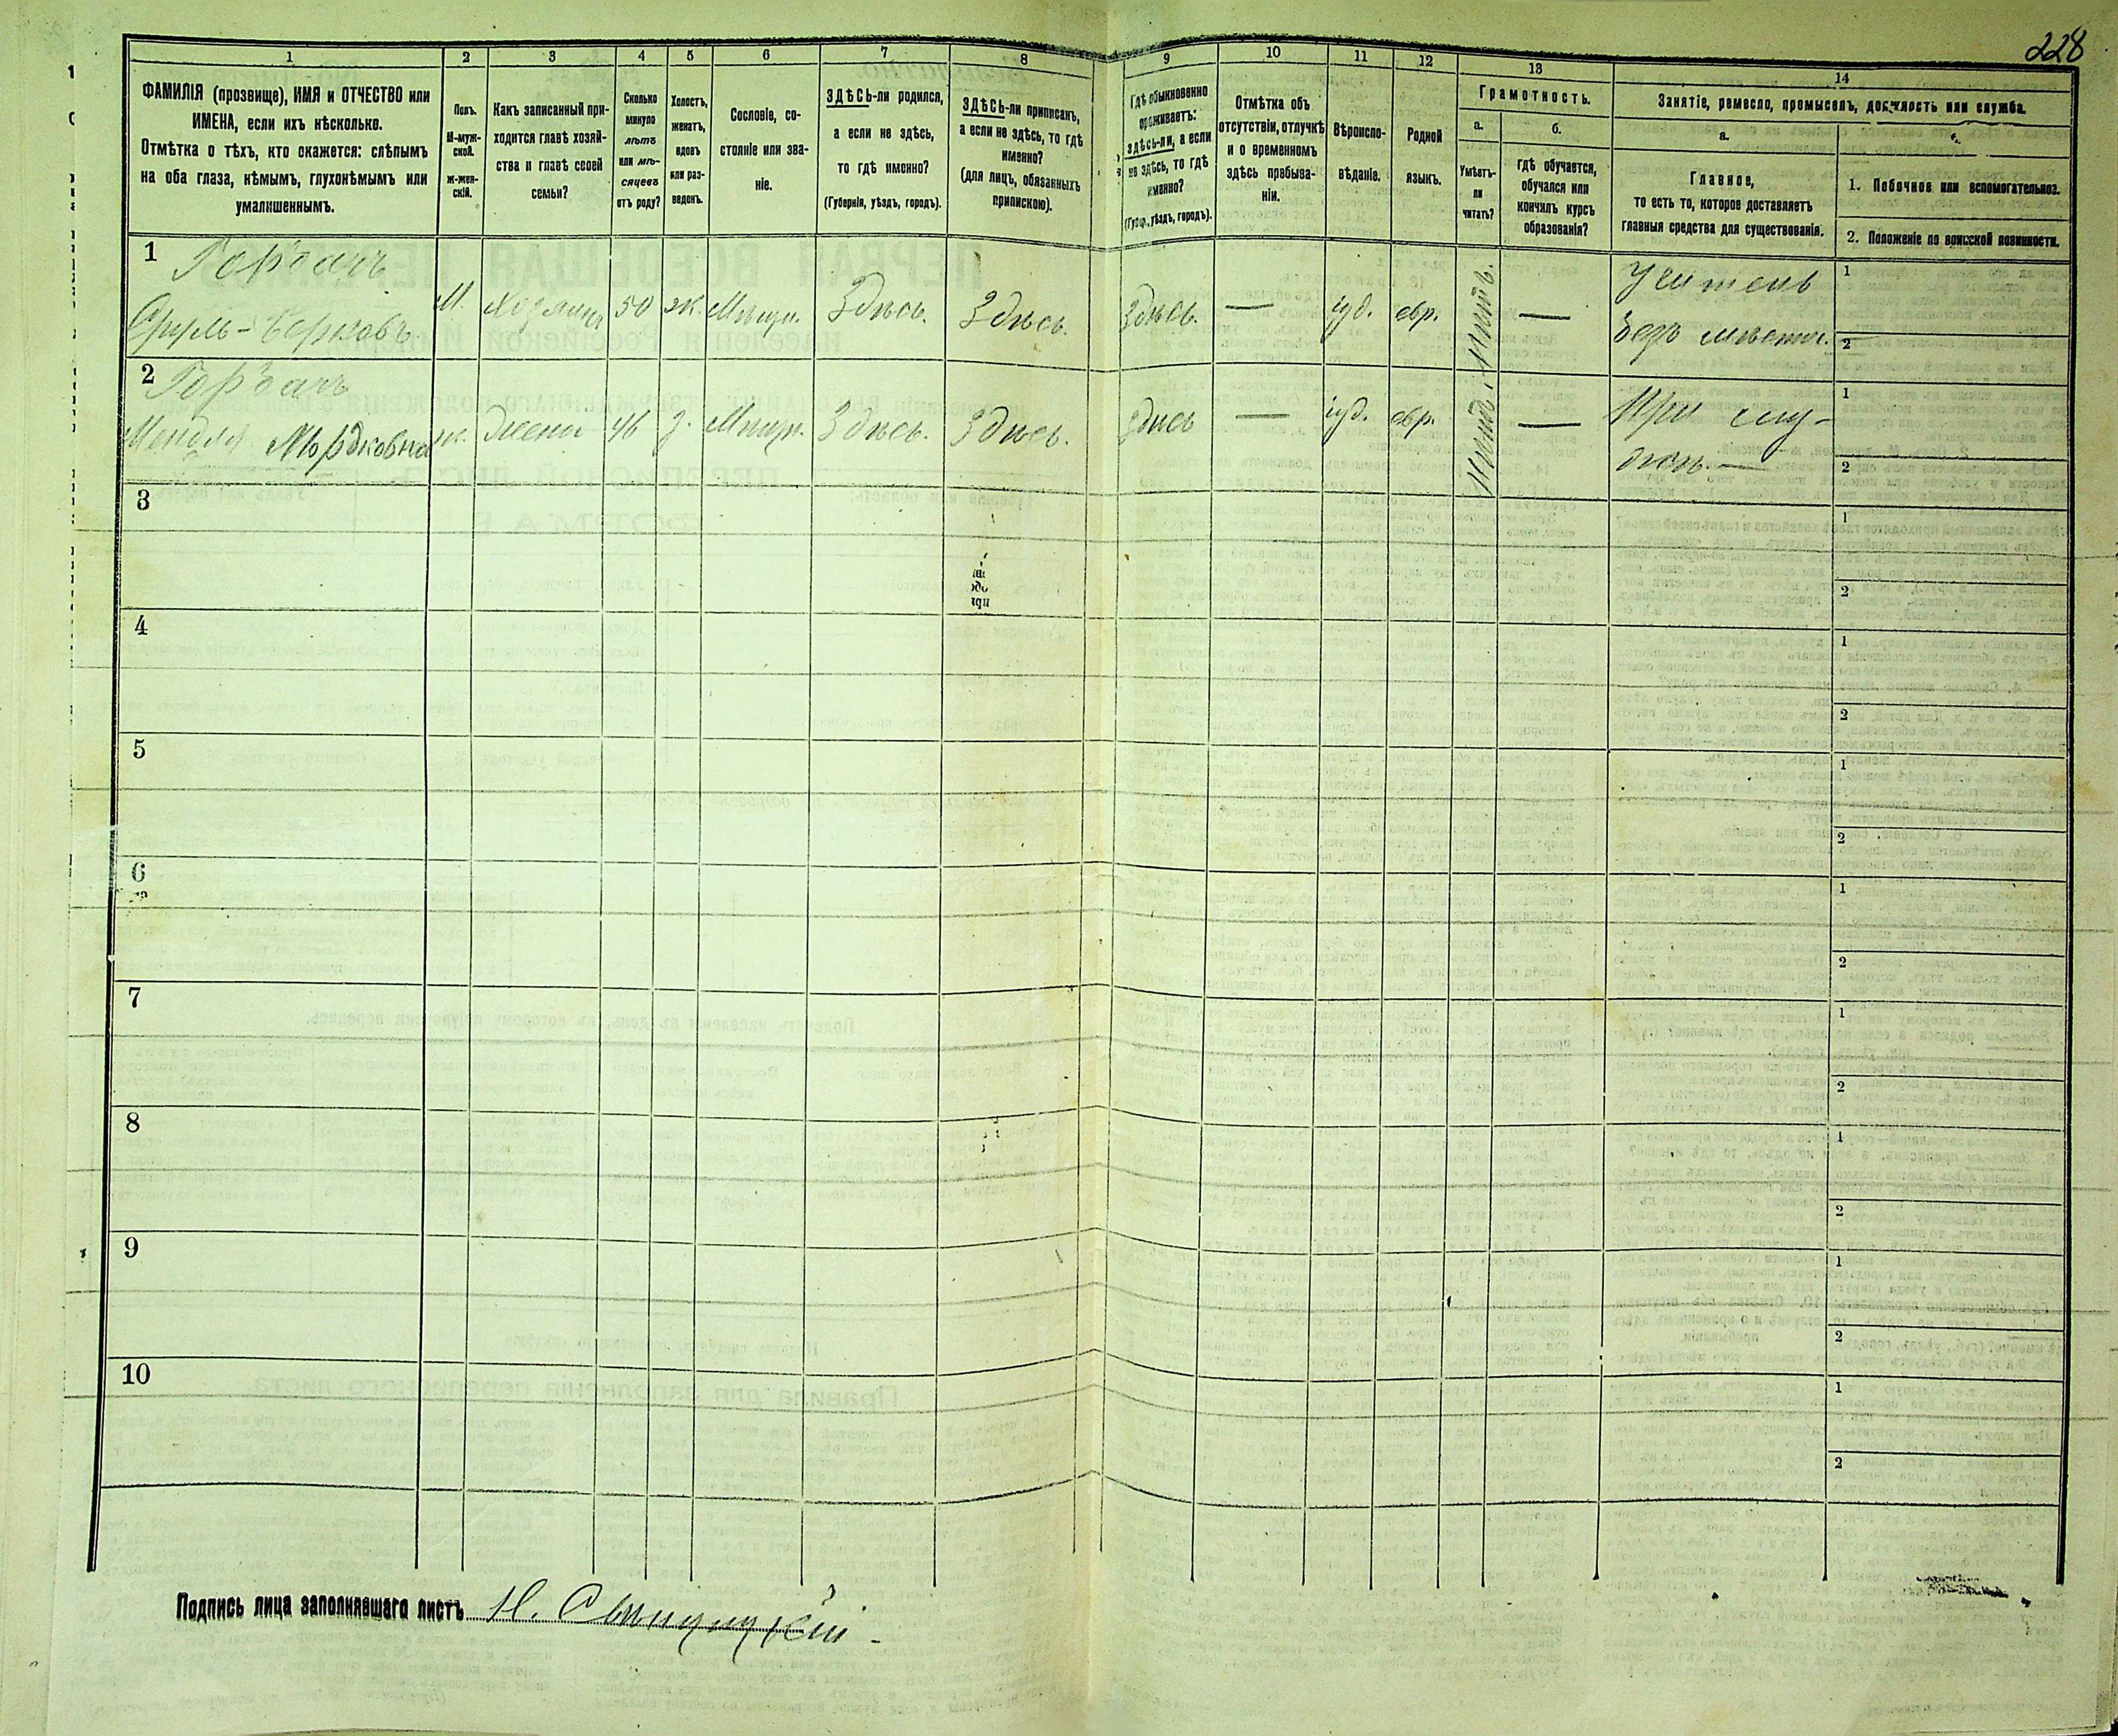 228
1
2
3
4
5
6
7
8
9
10
11
12
13
14
ФАМИЛІЯ (прозвище), ИМЯ и ОТЧЕСТВО или
ИМЕНА, если ихъ нѣсколько.
Отмѣтка о тѣхъ, кто окажется: слѣпымъ
на оба глаза, нѣмымъ, глухонѣмымъ или
умалишеннымъ.
Полъ.
М-муж-
ской.
Ж-жен-
скій.
Какъ записанный при-
ходится главѣ хозяй-
ства и главѣ своей
семьи?
Сколько
минуло
лѣтъ
или мѣ-
сяцевъ
отъ роду?
Холостъ,
женатъ,
вдовъ
или раз-
веденъ.
Сословіе, со-
стояніе или зва-
ніе.
ЗДѢСЬ-ли родился,
а если не здѣсь,
то гдѣ именно?
(Губернія, уѣздъ, городъ).
ЗДѢСЬ-ли приписанъ,
а если не здѣсь, то гдѣ
именно?
(для лицъ, обязанныхъ
припискою).
Гдѣ обыкновенно
проживаетъ:
здѣсь-ли, а если
не здѣсь, то гдѣ
именно?
(Губер., уѣздъ, городъ).
Отмѣтка объ
отсутствіи, отлучкѣ
и о временномъ
здѣсь пребыва-
ніи.
Вѣроиспо-
вѣданіе.
Родной
языкъ.
Грамотность.
а.
Умѣетъ-
ли
читать?
б.
гдѣ обучается,
обучался или
кончилъ курсъ
образованія?
Занятіе, ремесло, промыселъ, должность или служба.
а.
Главное,
то есть то, которое доставляетъ
главныя средства для существованія.
1. Побочное или вспомогательное.
2. Положеніе по воинской повинности.
1
Горбачъ
Сруль-Берковъ
М.
Хозяинъ
50
ж.
Мѣщ.
Здѣсь.
Здѣсь.
Здѣсь.
—
іуд.
евр.
—
Учитель
безъ мѣста.
1
2
2
Горбачъ
Мордковна
ж.
жена
46
з.
Мѣщ.
Здѣсь.
Здѣсь.
Здѣсь
—
іуд.
евр.
—
При му-
жѣ.—
1
2
3
1
2
4
1
2
5
1
2
6
1
2
7
1
2
8
1
2
9
1
2
10
1
2
Подпись лица заполнявшаго листъ